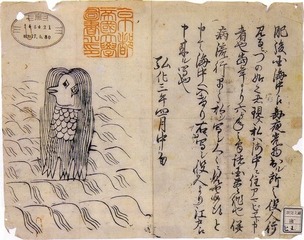 肥後国海中え毎夜光物出ル所之役人行
見るニづの如く者現ス私ハ海中ニ住アマビヱト申
者也當年より六ヶ年之間諸国豊作也併
病流行早々私シ写シ人々ニ見せ候得と
申て海中へ入けり右ハ写シ役人より江戸え
申来ル写也
弘化三年四月中旬
京都
帝國大學
圖書之印